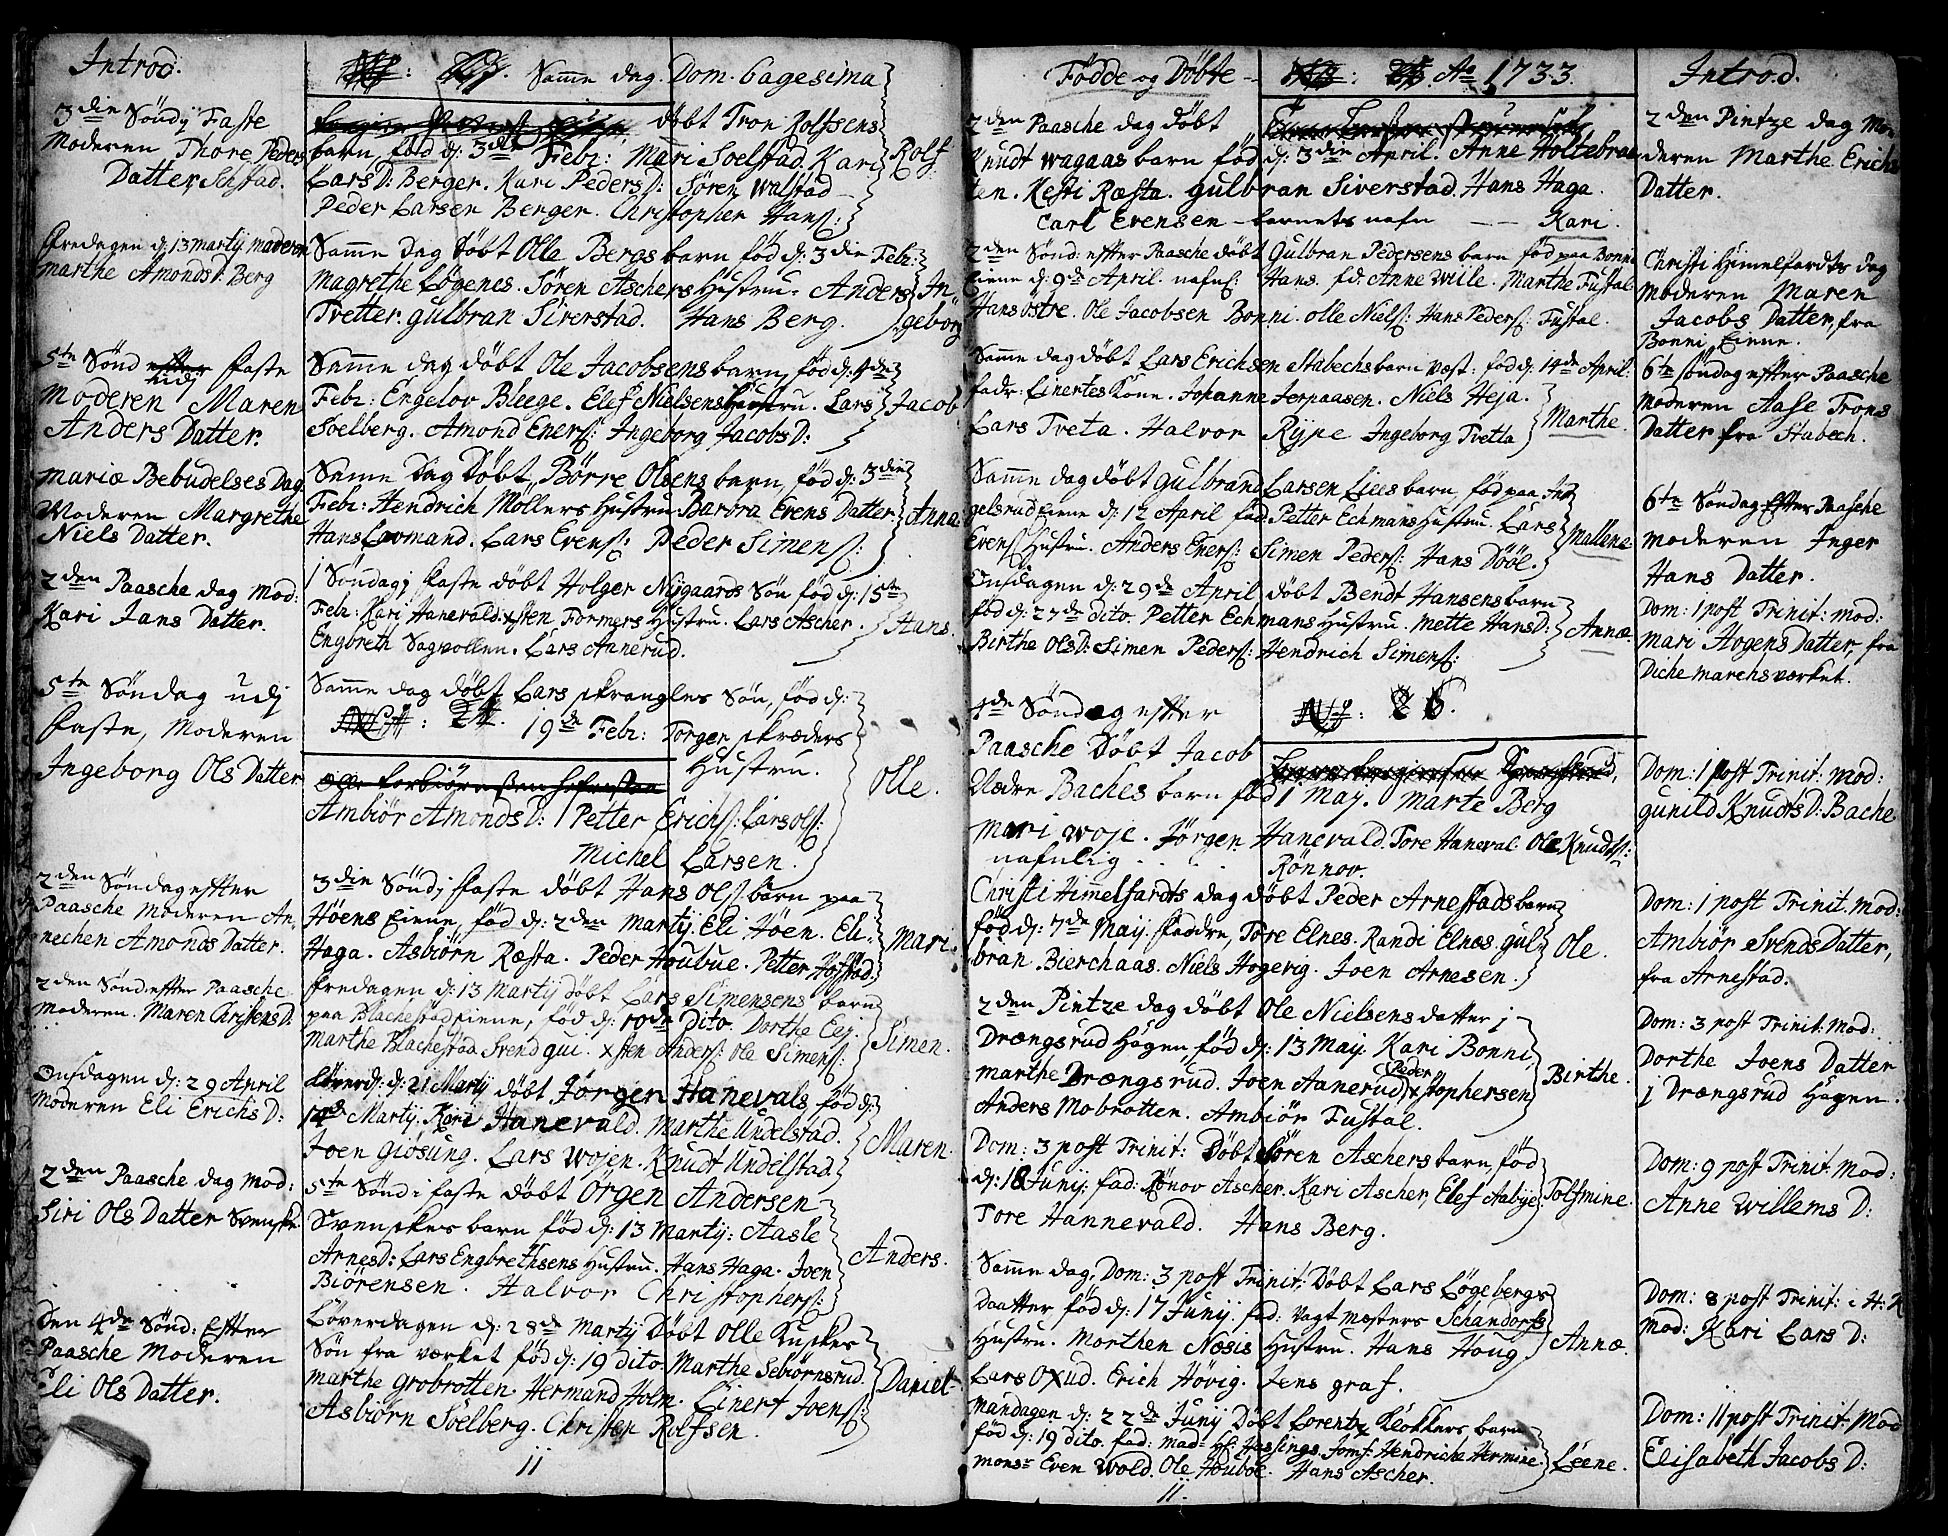 Introd.
3 die Söndj Faste
Moderen Thore Peders
Datter Solstad.
Fredagen d: 13 martij moderen
marthe AmondsD: Berg
5te Sönd udj faste
Moderen Maren
Anders Datter.
Mariæ Bebudelses Dag
Moderen Margrethe
Niels Datter.
2den Paasche dag Mod:
Kari Jans Datter.
5te Söndag udj
faste, Moderen
Ingeborg Ols Datter
2den Söndag efter
Paasche Moderen An-
nechen Amonds Datter.
2den Sönd. efter Paasche
Moderen. Maren ChristensD:
Onsdagen d: 29 April
Moderen Eli ErichsD:
2den Paasche dag Mod:
Siri Ols Datter Svenske
Den 4de Sönd: Efter
Paasche Moderen
Eli Ols Datter.
Samme dag. Dom. 6agesima
döbt Tron Rolfsens
barn, föd d: 3de Febr: Mari Soelstad. Kari
LarsD: Berger. Kari PedersD: Sören Walstad
Peder Larsen Berger. Christopher Hans:
Rolf
Samme Dag Döbt Olle Bergs barn föd d: 3 die Febr:
Magrethe Løgenes. Sören Aschers Hustru. Anders
Tvetter. gulbran Siverstad. Hans Berg.
In-
geborg
Samme dag döbt Ole Jacobsens barn, föd d: 4de
Febr: Engelov Bleege. Elef Nielsens Hustru. Lars
Soelberg. Amond Eners: Ingeborg JacobsD:
Jacob
Samme Dag Döbt, Börre Olsens barn, föd d: 3 die
Febr: Hendrich Möllers Hustru Barbra Evens Datter.
Hans Lovmand. Lars Evens: Peder Simens:
Anna
1 Söndag j faste döbt Holger Nygaards Sön föd d: 15te
Febr: Kari Hanevald. xsten Formers Hustru. Lars Ascher.
Engbreth Sagvollen. Lars Aanerud.
Hans.
Samme dag döbt Lars skrangles Sön, föd d:
24. 19de Febr: Torger skræders
Hustru.
Olle.
Ambiör AmondsD: Petter Erichs: Lars Ols:
Michel Larsen.
3 die Söndj faste döbt Hans Ols: barn paa
Höens Eiene, föd d: 2den Martij. Eli Höen. Eli
Haga. Asbiörn Ræsta. Peder Houbue. Petter Hofstad.
Mari.
fredagen d: 13 Martij döbt Lars Simensens barn
paa Blachestad eiene, föd d: 10de dito. Dorthe Eeg.
Marthe Blachestad Svend gui. xsten Anders: Ole Simens:
Simen.
Löverd: d: 21 Martij döbt Jörgen Hanevals föd d:
14de Martij. Kari Hanevald. Marthe Undelstad.
Joen giösung. Lars Wojen. Knudt Undelstad
Maren.
5te Sönd i faste döbt Örgen Andersen
Svenskes barn föd d: 13 Martij: Aasle
ArnesD: Lars Engbrethsens Hustru. Hans Haga. Joen
Biörensen. Halvor Christophers:
Anders.
Löverdagen d: 28de Martij Döbt Olle Kuskes
Sön fra værket föd d: 19 dito. Marthe Sebiörnsrud.
Marthe grobrotten. Hermand Holm. Einert Joens:
Asbiörn Soelberg. Christen Rolfsen.
Daniel
11
Födde og Döbte Ao 1733.
Introd.
2den Paasche dag döbt
Knudt wagaas barn föd d: 3 die April. Anne Holtebra-
ten. Kesti Ræsta. gulbran Siverstad. Hans Haga.
Carl Evensen - barnets nafn
Kari.
2den Sönd: efter Paasche döbt Gulbran Pedersens barn föd paa Bonni
Eiene d: 9de April. nafnl: Hans. fd: Anne Wille. Marthe Fustal
Hans Östre. Ole Jacobsen Bonni. Olle Niels: Hans Peders: Fustal.
Samme dag döbt Lars Erichsen Stabechs barn væst: föd d: 14de April:
fadr: Einertes Kone. Johanne Jerpaasen. Niels Heja.
Lars Tveta. Halvor Rype Ingeborg Tvetta
Marthe.
Samme dag döbt gulbrand Larsen Liees barn, föd paa In-
gelsrud eiene d: 12 April fad: Petter Echmans Hustru. Lars
Evens: Hustru. Anders Eners: Simen Peders: Hans Dööl.
Mallene
Onsdagen d: 29de April döbt Bendt Hansens barn
föd d: 27de dito. Petter Echmans Hustru. Mette HansD:
Birthe OlsD: Simen Peders: Hendrich Simens:
Annæ.
4de Söndag efter
Paasche Döbt Jacob
Baches barn föd 1 Maj. Marte Berg
Mari Woje. Jörgen Hanevald. Tore Haneval. Ole Knudts:
nafnlig
Rönnov.
Christi Himmelfardts dag döbt Peder Arnestads barn
föd d: 7de Maij. faddre, Tore Elnes. Randi Elnes. gul-
bran Bierchaas. Niels Hogerig. Joen Arnesen.
Ole.
2den Pintze dag döbt Ole Nielsens datter j
Drængsrud Hagen, föd d: 13 Maij. Kari Bonni,
Marthe Drængsrud. Joen Aanerud. Peder xstophersen
Anders Mobrotten. Ambiör Fustal.
Birthe.
Dom: 3 post Trinit: Döbt Sören Aschers barn, föd
d: 18 Junij: fad: Rönov Ascher. Kari Ascher, Elef Aabye
Tore Hannevald. Hans Berg.
Tolfmine.
Samme dag, Dom: 3 post Trinit: Döbt Lars Lögebergs
Daatter föd d: 17 Junij fad: vagt mæsters Schandorfs
Hustru. Morthen Næsis Hustru. Hans Houg
Lars Oxud. Erich Hövig. Jens graf.
Annæ.
Mandagen d: 22de Junij Döbt Lorentz Klokkers barn
föd d: 19 dito. fad: Mad: Hesselings. Jomf: Hendriche Hermine.
Monsr Even Wold. Ole Houboe. Hans Ascher.
Leene.
11.
2den Pintze dag Mo-
deren Marthe Erichs
Datter.
Christi Himmelfardts dag
Moderen Maren
Jacobs Datter, fra
Bonni Eiene.
6te söndag efter Paasche
Moderen Aase Trons
Datter fra Stabech.
6te Söndag Efter Paasche
Moderen Inger
Hans Datter.
Dom: 1 post Trinit: Mod:
Mari Hogens Datter, fra
Dichemarchs værket.
Dom: 1 post Trinit: Mod:
gunild KnudtsD: Bache
Dom: 1 post Trinit. Mod:
Ambiör Svends Datter,
fra Arnestad.
Dom: 3 post Trinit: Mod:
Dorthe Joens Datter
j Drængsrud Hagen.
Dom: 9 post Trinit: Mod:
Anne Willems D:
Dom: 8 post Trinit: i H: K
Mod: Kari Lars D:
Dom: 11 post Trinit: Mod
Elisabeth Jacobs D: